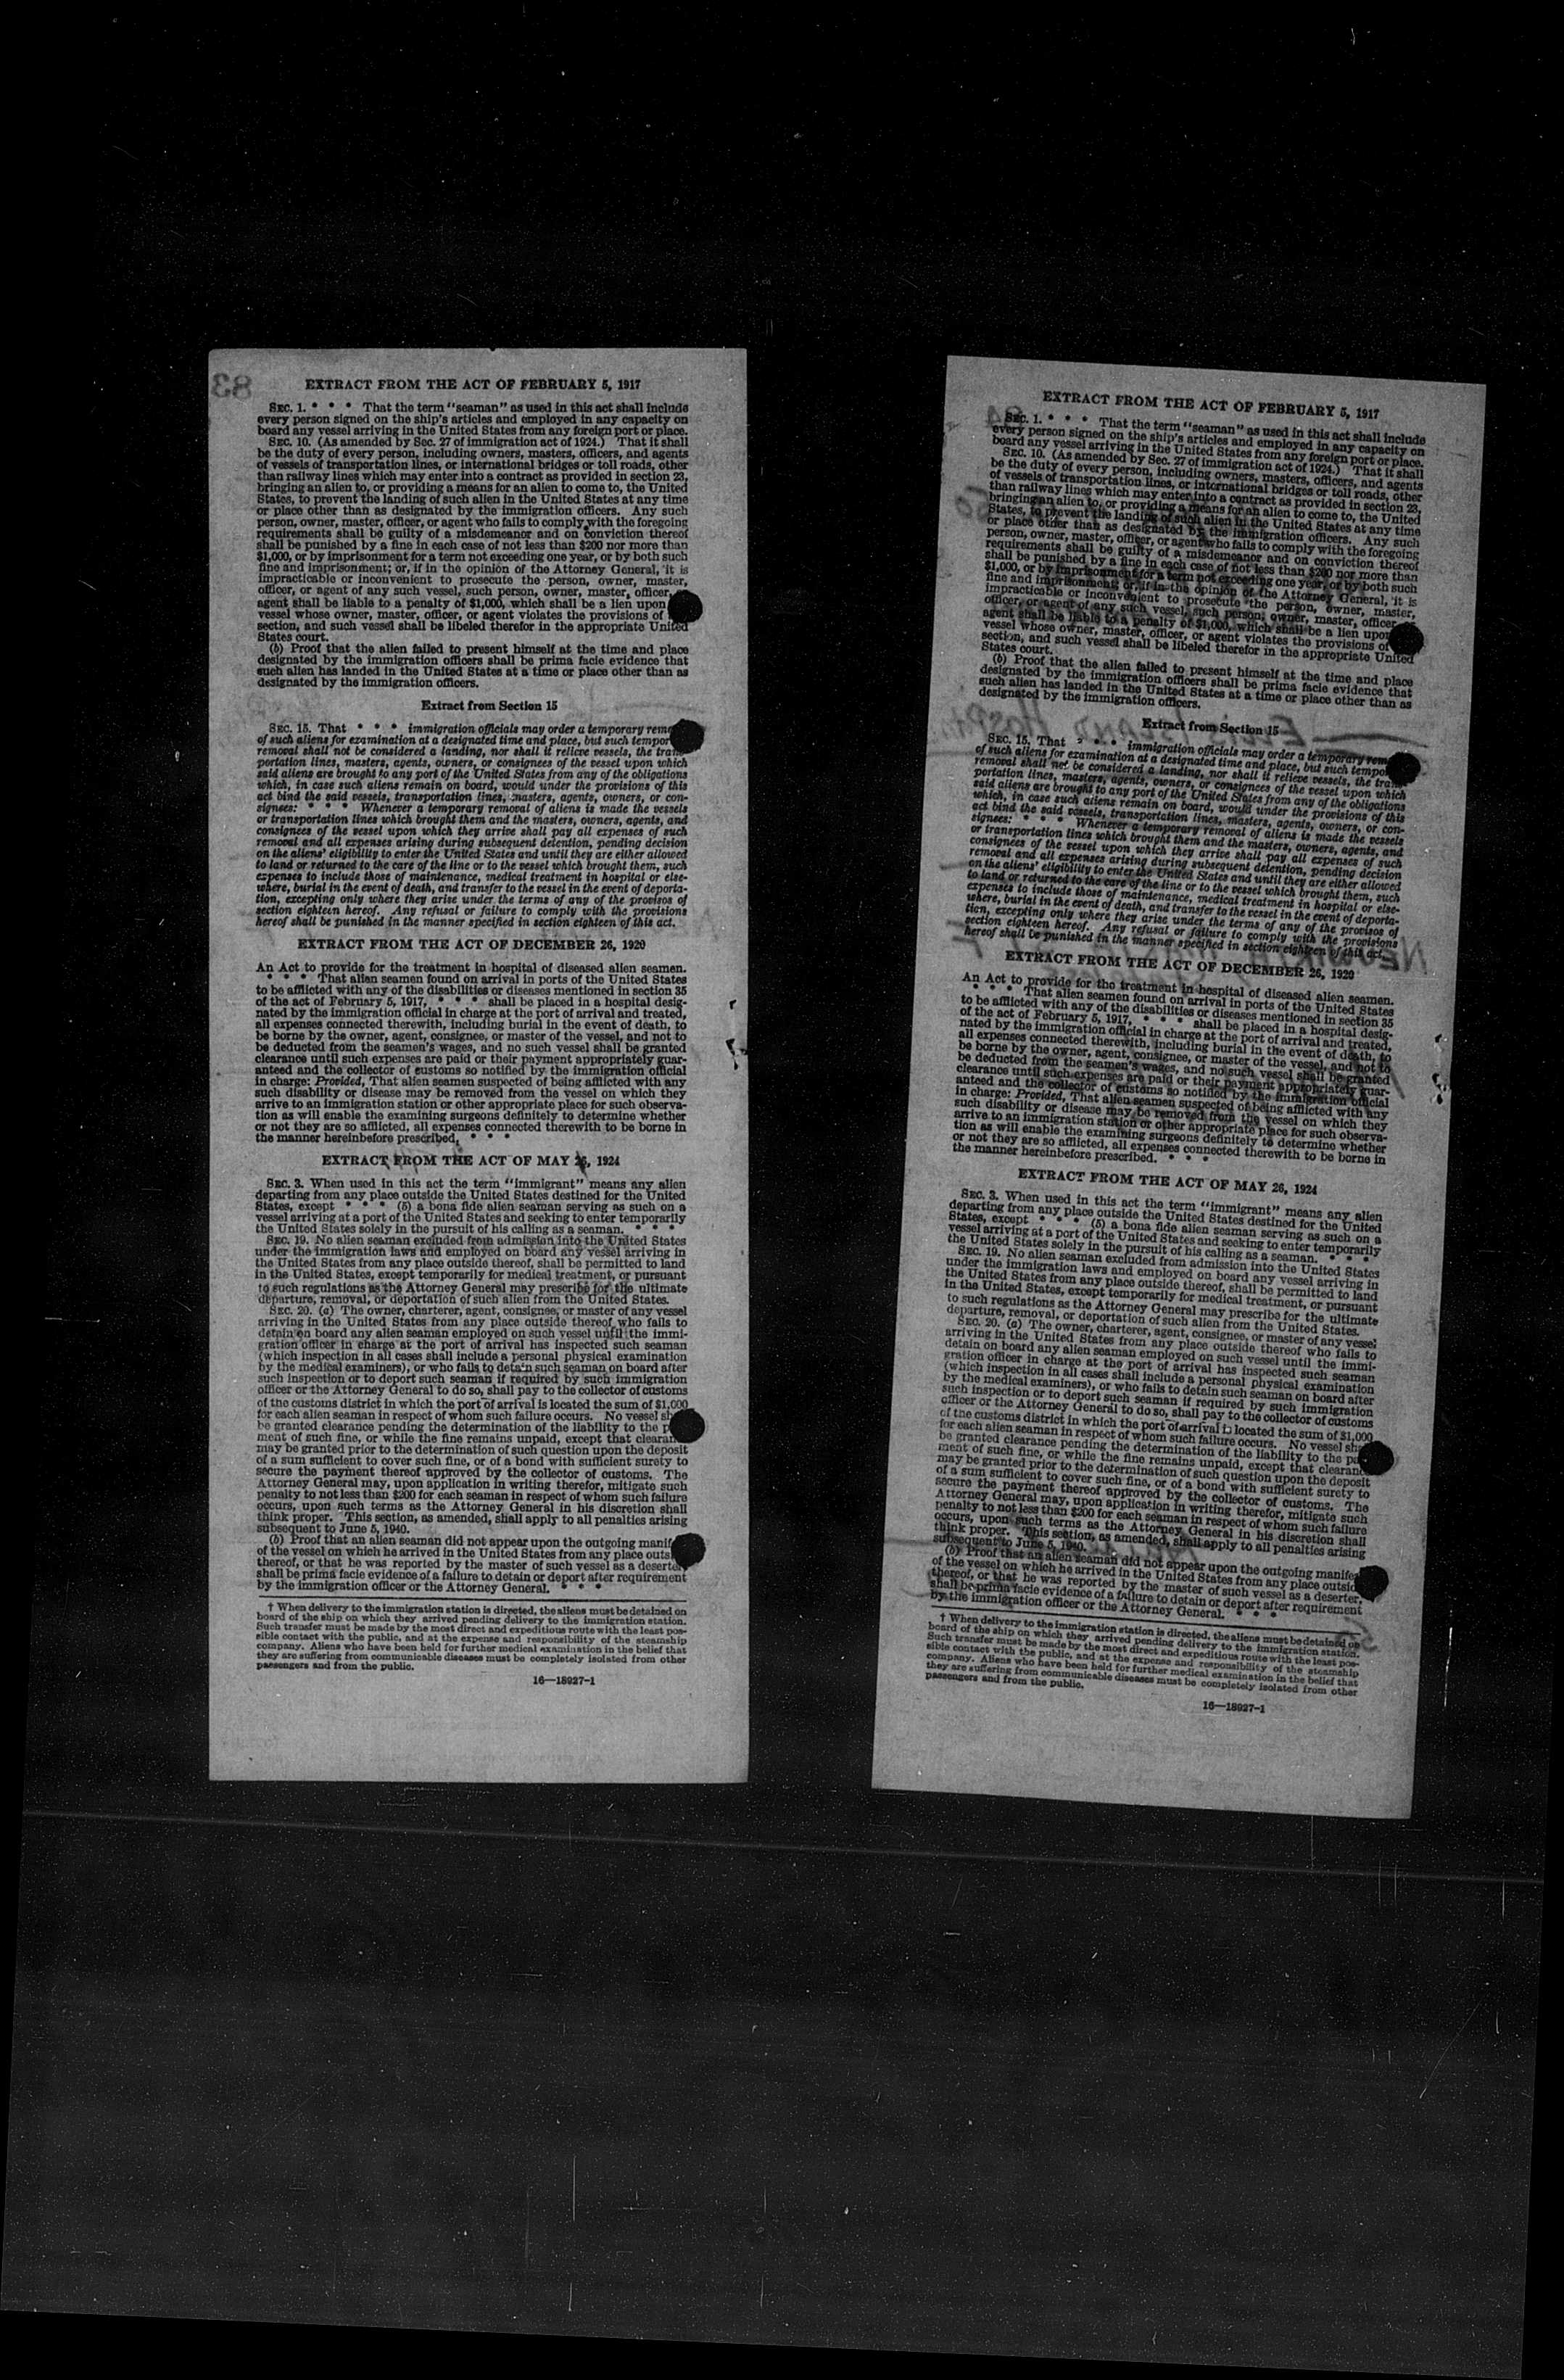 EXTRACT FROM THE ACT OF FEBRUARY 5, 1917
SEC. 1. * * * That the term "seaman" as used in this act shall include
every person signed on the ship's articles and employed in any capacity on
board any vessel arriving in the United States from any foreign port or place.
SEC. 10. (As amended by Sec. 27 of immigration act of 1924.) That it shall
be the duty of every person, including owners, masters, officers, and agents
of vessels of transportation lines, or international bridges or toll roads, other
than railway lines which may enter into a contract as provided in section 23,
bringing an alien to, or providing a means for an alien to come to, the United
States, to prevent the landing of such alien in the United States at any time
or place other than as designated by the immigration officers. Any such
person, owner, master, officer, or agent who fails to comply with the foregoing
requirements shall be guilty of a misdemeanor and on conviction thereof
shall be punished by a fine in each case of not less than $200 nor more than
$1,000, or by imprisonment for a term not exceeding one year, or by both such
fine and imprisonment; or, if in the opinion of the Attorney General, it is
impracticable or inconvenient to prosecute the person, owner, master,
officer, or agent of any such vessel, such person, owner, master, officer,
agent shall be liable to a penalty of $1,000, which shall be a lien upon
vessel whose owner, master, officer, or agent violates the provisions of
section, and such vessel shall be libeled therefor in the appropriate United
States court.
(b) Proof that the alien failed to present himself at the time and place
designated by the immigration officers shall be prima facie evidence that
such alien has landed in the United States at a time or place other than as
designated by the immigration officers.
Extract from Section 15
SEC. 15. That * * * immigration officials may order a temporary remo
of such aliens for examination at a designated time and place, but such tempor
removal shall not be considered a landing, nor shall it relieve vessels, the trans-
portation lines, masters, agents, owners, or consignees of the vessel upon which
said aliens are brought to any port of the United States from any of the obligations
which, in case such aliens remain on board, would under the provisions of this
act bind the said vessels, transportation lines, masters, agents, owners, or con-
signees: * * * Whenever a temporary removal of aliens is made the vessels
or transportation lines which brought them and the masters, owners, agents, and
consignees of the vessel upon which they arrive shall pay all expenses of such
removal and all expenses arising during subsequent detention, pending decision
on the aliens' eligibility to enter the United States and until they are either allowed
to land or returned to the care of the line or to the vessel which brought them, such
expenses to include those of maintenance, medical treatment in hospital or else-
where, burial in the event of death, and transfer to the vessel in the event of deporta-
tion, excepting only where they arise under the terms of any of the provisos of
section eighteen hereof. Any refusal or failure to comply with the provisions
hereof shall be punished in the manner specified in section eighteen of this act.
EXTRACT FROM THE ACT OF DECEMBER 26, 1920
An Act to provide for the treatment in hospital of diseased alien seamen.
* * * That alien seamen found on arrival in ports of the United States
to be afflicted with any of the disabilities or diseases mentioned in section 35
of the act of February 5, 1917, * * * shall be placed in a hospital desig-
nated by the immigration official in charge at the port of arrival and treated,
all expenses connected therewith, including burial in the event of death, to
be borne by the owner, agent, consignee, or master of the vessel, and not to
be deducted from the seamen's wages, and no such vessel shall be granted
clearance until such expenses are paid or their payment appropriately guar-
anteed and the collector of customs so notified by the immigration official
in charge: Provided, That alien seamen suspected of being afflicted with any
such disability or disease may be removed from the vessel on which they
arrive to an immigration station or other appropriate place for such observa-
tion as will enable the examining surgeons definitely to determine whether
or not they are so afflicted, all expenses connected therewith to be borne in
the manner hereinbefore prescribed. * * *
EXTRACT FROM THE ACT OF MAY 26, 1924
SEC. 3. When used in this act the term "immigrant" means any alien
departing from any place outside the United States destined for the United
States, except * * * (5) a bona fide alien seaman serving as such on a
vessel arriving at a port of the United States and seeking to enter temporarily
the United States solely in the pursuit of his calling as a seaman. * * *
SEC. 19. No alien seaman excluded from admission into the United States
under the immigration laws and employed on board any vessel arriving in
the United States from any place outside thereof, shall be permitted to land
in the United States, except temporarily for medical treatment, or pursuant
to such regulations as the Attorney General may prescribe for the ultimate
departure, removal, or deportation of such alien from the United States.
SEC. 20. (a) The owner, charterer, agent, consignee, or master of any vessel
arriving in the United States from any place outside thereof who fails to
detain on board any alien seaman employed on such vessel until the immi-
gration officer in charge at the port of arrival has inspected such seaman
(which inspection in all cases shall include a personal physical examination
by the medical examiners), or who fails to detain such seaman on board after
such inspection or to deport such seaman if required by such immigration
officer or the Attorney General to do so, shall pay to the collector of customs
of the customs district in which the port of arrival is located the sum of $1,000
for each alien seaman in respect of whom such failure occurs. No vessel sh
be granted clearance pending the determination of the liability to the p
ment of such fine, or while the fine remains unpaid, except that clearan
may be granted prior to the determination of such question upon the deposit
of a sum sufficient to cover such fine, or of a bond with sufficient surety to
secure the payment thereof approved by the collector of customs. The
Attorney General may, upon application in writing therefor, mitigate such
penalty to not less than $200 for each seaman in respect of whom such failure
occurs, upon such terms as the Attorney General in his discretion shall
think proper. This section, as amended, shall apply to all penalties arising
subsequent to June 5, 1940.
(b) Proof that an alien seaman did not appear upon the outgoing manif
of the vessel on which he arrived in the United States from any place outsi
thereof, or that he was reported by the master of such vessel as a deserter,
shall be prima facie evidence of a failure to detain or deport after requirement
by the immigration officer or the Attorney General. * * *
† When delivery to the immigration station is directed, the aliens must be detained on
board of the ship on which they arrived pending delivery to the immigration station.
Such transfer must be made by the most direct and expeditious route with the least pos-
sible contact with the public, and at the expense and responsibility of the steamship
company. Aliens who have been held for further medical examination in the belief that
they are suffering from communicable diseases must be completely isolated from other
passengers and from the public.
16—18927-1
EXTRACT FROM THE ACT OF FEBRUARY 5, 1917
SEC. 1. * * * That the term "seaman" as used in this act shall include
every person signed on the ship's articles and employed in any capacity on
board any vessel arriving in the United States from any foreign port or place.
SEC. 10. (As amended by Sec. 27 of immigration act of 1924.) That it shall
be the duty of every person, including owners, masters, officers, and agents
of vessels of transportation lines, or international bridges or toll roads, other
than railway lines which may enter into a contract as provided in section 23,
bringing an alien to, or providing a means for an alien to come to, the United
States, to prevent the landing of such alien in the United States at any time
or place other than as designated by the immigration officers. Any such
person, owner, master, officer, or agent who fails to comply with the foregoing
requirements shall be guilty of a misdemeanor and on conviction thereof
shall be punished by a fine in each case of not less than $200 nor more than
$1,000, or by imprisonment for a term not exceeding one year, or by both such
fine and imprisonment; or, if in the opinion of the Attorney General, it is
impracticable or inconvenient to prosecute the person, owner, master,
officer, or agent of any such vessel, such person, owner, master, officer,
agent shall be liable to a penalty of $1,000, which shall be a lien upon
vessel whose owner, master, officer, or agent violates the provisions of
section, and such vessel shall be libeled therefor in the appropriate United
States court.
(b) Proof that the alien failed to present himself at the time and place
designated by the immigration officers shall be prima facie evidence that
such alien has landed in the United States at a time or place other than as
designated by the immigration officers.
Extract from Section 15
SEC. 15. That * * * immigration officials may order a temporary remo
of such aliens for examination at a designated time and place, but such tempor
removal shall not be considered a landing, nor shall it relieve vessels, the trans-
portation lines, masters, agents, owners, or consignees of the vessel upon which
said aliens are brought to any port of the United States from any of the obligations
which, in case such aliens remain on board, would under the provisions of this
act bind the said vessels, transportation lines, masters, agents, owners, or con-
signees: * * * Whenever a temporary removal of aliens is made the vessels
or transportation lines which brought them and the masters, owners, agents, and
consignees of the vessel upon which they arrive shall pay all expenses of such
removal and all expenses arising during subsequent detention, pending decision
on the aliens' eligibility to enter the United States and until they are either allowed
to land or returned to the care of the line or to the vessel which brought them, such
expenses to include those of maintenance, medical treatment in hospital or else-
where, burial in the event of death, and transfer to the vessel in the event of deporta-
tion, excepting only where they arise under the terms of any of the provisos of
section eighteen hereof. Any refusal or failure to comply with the provisions
hereof shall be punished in the manner specified in section eighteen of this act.
EXTRACT FROM THE ACT OF DECEMBER 26, 1920
An Act to provide for the treatment in hospital of diseased alien seamen.
* * * That alien seamen found on arrival in ports of the United States
to be afflicted with any of the disabilities or diseases mentioned in section 35
of the act of February 5, 1917, * * * shall be placed in a hospital desig-
nated by the immigration official in charge at the port of arrival and treated,
all expenses connected therewith, including burial in the event of death, to
be borne by the owner, agent, consignee, or master of the vessel, and not to
be deducted from the seamen's wages, and no such vessel shall be granted
clearance until such expenses are paid or their payment appropriately guar-
anteed and the collector of customs so notified by the immigration official
in charge: Provided, That alien seamen suspected of being afflicted with any
such disability or disease may be removed from the vessel on which they
arrive to an immigration station or other appropriate place for such observa-
tion as will enable the examining surgeons definitely to determine whether
or not they are so afflicted, all expenses connected therewith to be borne in
the manner hereinbefore prescribed. * * *
EXTRACT FROM THE ACT OF MAY 26, 1924
SEC. 3. When used in this act the term "immigrant" means any alien
departing from any place outside the United States destined for the United
States, except * * * (5) a bona fide alien seaman serving as such on a
vessel arriving at a port of the United States and seeking to enter temporarily
the United States solely in the pursuit of his calling as a seaman. * * *
SEC. 19. No alien seaman excluded from admission into the United States
under the immigration laws and employed on board any vessel arriving in
the United States from any place outside thereof, shall be permitted to land
in the United States, except temporarily for medical treatment, or pursuant
to such regulations as the Attorney General may prescribe for the ultimate
departure, removal, or deportation of such alien from the United States.
SEC. 20. (a) The owner, charterer, agent, consignee, or master of any vessel
arriving in the United States from any place outside thereof who fails to
detain on board any alien seaman employed on such vessel until the immi-
gration officer in charge at the port of arrival has inspected such seaman
(which inspection in all cases shall include a personal physical examination
by the medical examiners), or who fails to detain such seaman on board after
such inspection or to deport such seaman if required by such immigration
officer or the Attorney General to do so, shall pay to the collector of customs
of the customs district in which the port of arrival is located the sum of $1,000
for each alien seaman in respect of whom such failure occurs. No vessel sha
be granted clearance pending the determination of the liability to the pa
ment of such fine, or while the fine remains unpaid, except that clearanc
may be granted prior to the determination of such question upon the deposit
of a sum sufficient to cover such fine, or of a bond with sufficient surety to
secure the payment thereof approved by the collector of customs. The
Attorney General may, upon application in writing therefor, mitigate such
penalty to not less than $200 for each seaman in respect of whom such failure
occurs, upon such terms as the Attorney General in his discretion shall
think proper. This section, as amended, shall apply to all penalties arising
subsequent to June 5, 1940.
(b) Proof that an alien seaman did not appear upon the outgoing manifes
of the vessel on which he arrived in the United States from any place outsid
thereof, or that he was reported by the master of such vessel as a deserter,
shall be prima facie evidence of a failure to detain or deport after requirement
by the immigration officer or the Attorney General. * * *
† When delivery to the immigration station is directed, the aliens must be detained on
board of the ship on which they arrived pending delivery to the immigration station.
Such transfer must be made by the most direct and expeditious route with the least pos-
sible contact with the public, and at the expense and responsibility of the steamship
company. Aliens who have been held for further medical examination in the belief that
they are suffering from communicable diseases must be completely isolated from other
passengers and from the public.
16—18927-1